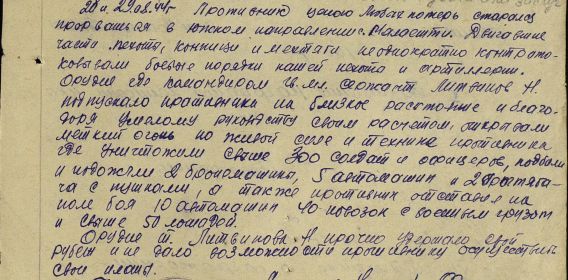 28 и 29.08.44г Противник ценою любых потерь старался
прорваться в южном направлении. Двигавшие
части пехоты, конницы и мехтяги неоднократно контрата-
ковывали боевые порядки нашей пехоты и артиллерии.
Орудие где командиром гв. мл. сержант Литвинов Н.
подпускало противника на близкое расстояние и благо-
даря умелому руководству своим расчетом, открывали
меткий огонь по живой силе и технике противника
где уничтожили свыше 300 солдат и офицеров, подбили
и подожгли 2 бронемашины, 5 автомашин и 2 тягача
с пушками, а также противник отставил на
поле боя 10 автомашин 40 повозок с военным грузом
и свыше 50 лошадей.
Орудие т. Литвинова Н. прочно удержало свой
рубеж и не дало возможности противнику осуществить
свои планы.